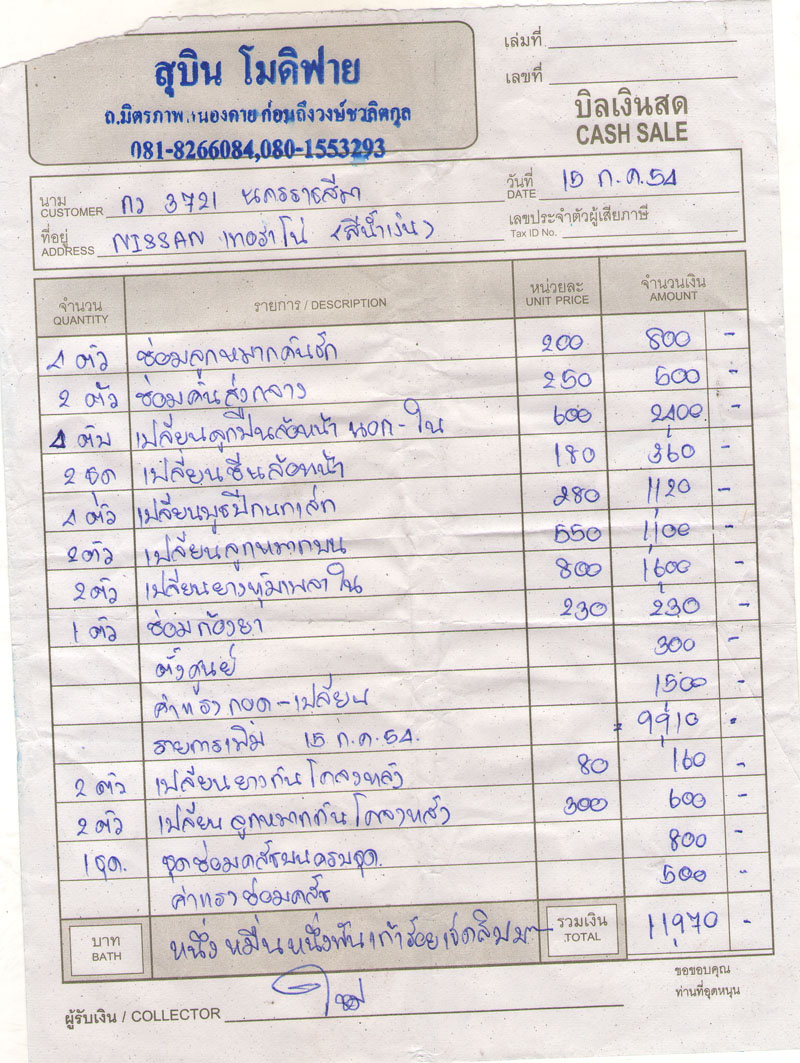 สุบิน โมดิฟาย
ถ.มิตรภาพ.หนองคาย ก่อนถึงวงษ์ชวลิตกุล
081-8266084,080-1553293
เล่มที่
เลขที่
บิลเงินสด
CASH SALE
นาม CUSTOMER กว 3721 นครราชสีมา
วันที่ DATE 15 ก.ค.54
ที่อยู่ ADDRESS NISSAN เทอราโน่ (สีน้ำเงิน)
เลขประจำตัวผู้เสียภาษี Tax ID No.
จำนวน QUANTITY รายการ / DESCRIPTION หน่วยละ UNIT PRICE จำนวนเงิน AMOUNT
4 ตัว ซ่อมลูกหมากคันชัก 200 800 -
2 ตัว ซ่อมคันส่งกลาง 250 500 -
4 ตับ เปลี่ยนลูกปืนล้อหน้า นอก-ใน 600 2400 -
2 ชุด เปลี่ยนซีนล้อหน้า 180 360 -
4 ตัว เปลี่ยนบูชปีกนก 280 1,120 -
2 ตัว เปลี่ยนลูกหมากบน 550 1,100 -
2 ตัว เปลี่ยนยางหุ้มเพลา ใน 800 1,600 -
1 ตัว ซ่อมก้องยา 230 230 -
ตั้งศูนย์ 300 -
ค่าแรง ถอด-เปลี่ยน 1500 -
รายการเพิ่ม 15 ก.ค.54. = 9,910 -
2 ตัว เปลี่ยนยางกันโคลงหลัง 80 160 -
2 ตัว เปลี่ยนลูกหมากกันโคลงหลัง 300 600 -
1 ชุด. ชุดซ่อมคลัชบนครบชุด. 800 -
ค่าแรงซ่อมคลัช 500 -
บาท BATH หนึ่งหมื่นหนึ่งพันเก้าร้อยเจ็ดสิบบาท รวมเงิน TOTAL 11,970 -
ขอขอบคุณ
ท่านที่อุดหนุน
ผู้รับเงิน / COLLECTOR